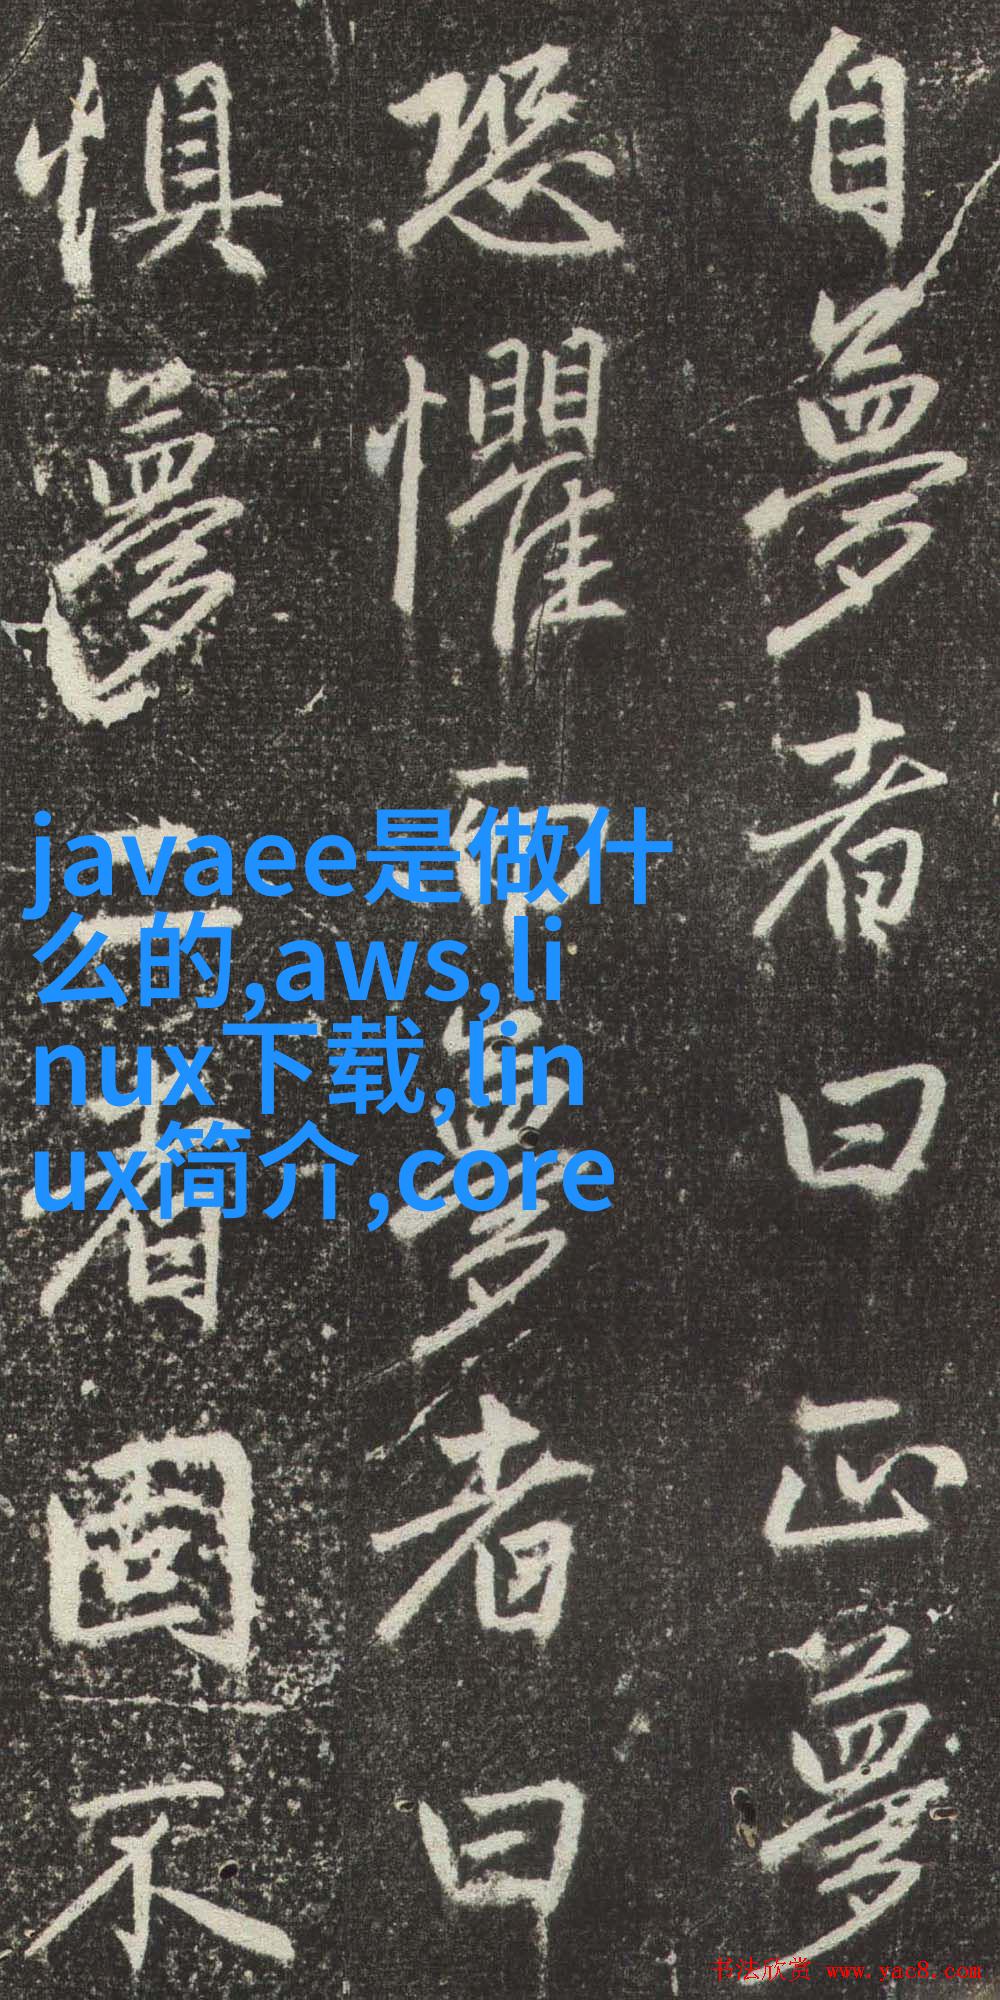 自夢者曰正夢
恐懼而夢者曰
惧夢二者固不
javaee是做什
么的,aws,li
nux下载,lin
ux简介,core
书法欣赏 www.yac8.com